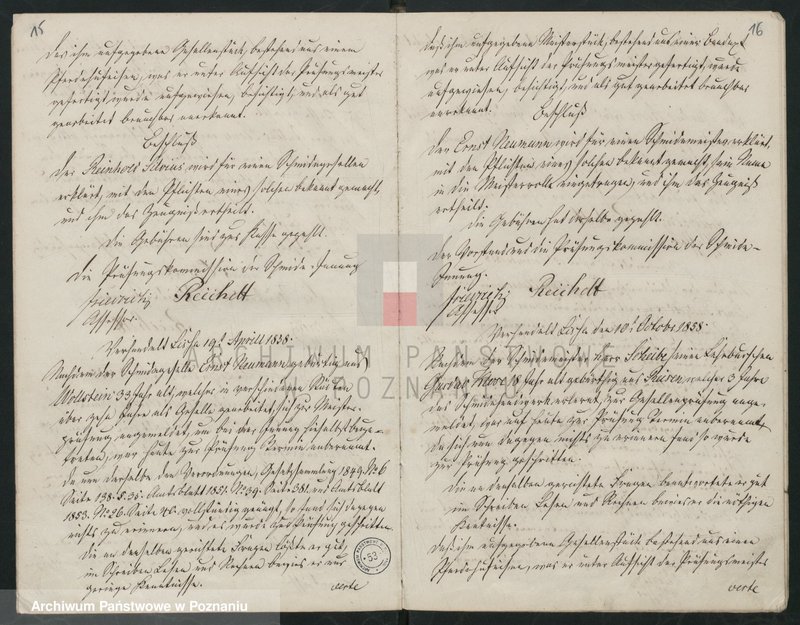 15
das ihm aufgegebene Gesellenstück, bestehend aus einem
Pferdehufeisen, was er unter Aufsicht der Prüfungsmeister
gefertigt, wurde aufgewiesen, besichtigt, und als gut
gearbeitet brauchbar anerkannt.
Beschluß
Der Reinhold wird für einen Schmiedegesellen
erklärt, mit den Pflichten eines solchen bekannt gemacht,
und ihm das Zeugniß ertheilt.
Die Gebühren sind zur Kasse gezahlt.
Die Prüfungskommission der Schmiede-Innung
Reichelt
Assessor
Verhandelt 19t April 1858.
Nachdem der Schmiedegeselle Ernst Neumann, gebürtig aus
Wollstein 33 Jahr alt, welcher in verschiedenen
über zehn Jahre als Geselle gearbeitet, sich zur Meister-
prüfung angemeldet, um bei der Innung
treten, war heute zur Prüfung Termin anberaumt.
Da nun derselbe den Verordnungen, Gesetzsammlung 1849 No 6
Seite 138 § 35. Amtsblatt 1851 No 39. Seite 381. und Amtsblatt
1853. No 26. Seite vollständig genügt, so fand sich dagegen
nichts zu erinnern, und es wurde zur Prüfung geschritten.
Die an denselben gerichtete Fragen löste er gut,
im Schreiben Lesen und Rechnen bewies er nur
geringe Kenntnisse.
verte
53
16
Das ihm aufgegebene Meisterstück, bestehend aus einer
was er unter Aufsicht der Prüfungsmeister gefertigt, wurde
aufgewiesen, besichtigt, und als gut gearbeitet brauchbar
anerkannt.
Beschluß
Der Ernst Neumann wird für einen Schmiedemeister erklärt,
mit den Pflichten eines solchen bekannt gemacht, sein Name
in die Meisterrolle eingetragen, und ihm das Zeugniß
ertheilt.
Die Gebühren hat derselbe gezahlt.
Der Vorstand und die Prüfungskommission der Schmiede-
Innung.
Reichelt
Assessor
Verhandelt den 10t Octobr 1858
Nachdem der Schmiedemeister Herr Scheibe seinen Lehrburschen
Gustav Jahr alt gebürtig aus welcher 3 Jahre
das Schmiedehandwerk erlernt, zur Gesellenprüfung ange-
meldet, war auf heute zur Prüfung Termin anberaumt,
da sich nun dagegen nichts zu erinnern fand so wurde
zur Prüfung geschritten.
Die an denselben gerichtete Fragen beantwortete er gut
im Schreiben Lesen und Rechnen bewies er die nöthigen
Kentnisse.
Das ihm aufgegebene Gesellenstück bestehend aus einem
Pferdehufeisen, was er unter Aufsicht der Prüfungsmeister
verte
ARCHIWUM PAŃSTWOWE
W POZNANIU
Archiwum Państwowe w Poznaniu